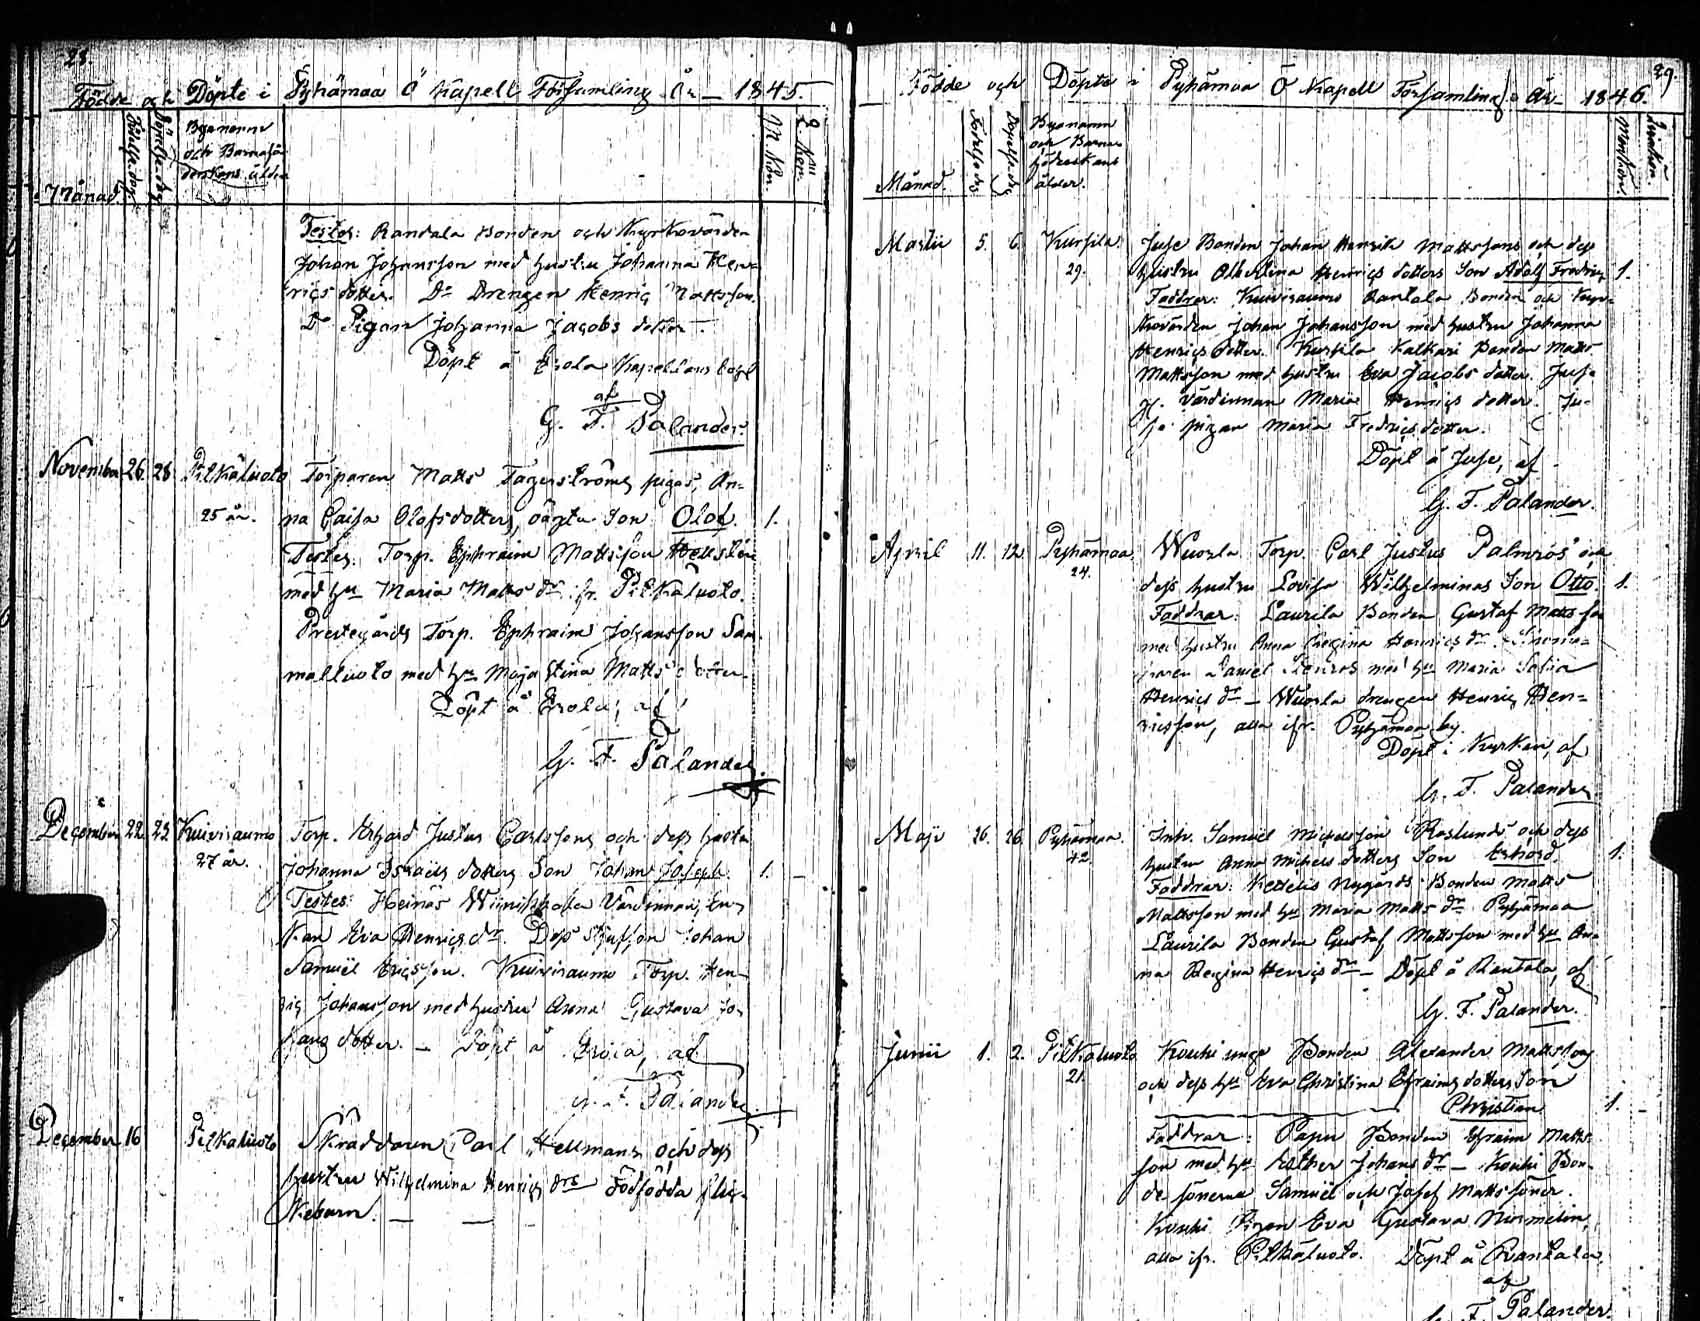 28.
Födde och Döpte i Pyhämaa Ö Kapell Församling År 1845.
Månad.
Födelsedag.
Döpelsedag
Byanamn
och Barnafö-
derskans ålder
M. Kön.
Q. Kön.
Testes: Randala Bonden och Kyrkovärden
Johan Johansson med hustru Johanna Hen-
rics dotter. Do Drengen Henric Mattsson.
Do Pigan Johanna Jacobs dotter.
Döpt å Erola Kapellans bohl
af
G. F. Palander.
November 26. 28. Pitkäluoto Torparen Matts Fagerströms pigas, An-
25 år. na Caisa Olofsdotters, oägta Son Olof. 1.
Testes: Torp. Ephraim Mattsson Hellsten
med hu Maria Matts dr ifr. Pitkäluoto.
Prestegårds Torp. Ephraim Johansson Sam-
malluoto med hu Maja Stina Matts dotter.
Döpt å Erola, af
G. F. Palander.
December 22. 23. Kuivirauma Torp. Erhard Justus Carlssons och dess hustru
27 år. Johanna Israels dotters Son Johan Joseph. 1.
Testes: Heinäs Värdinnan, En-
kan Eva Henrics dr. Dess Styfson Johan
Samuel Ericsson. Kuivirauma Torp. Hen-
ric Johansson med hustru Anna Gustava Jo-
hans dotter. — Döpt å Erola, af
G. F. Palander
December 16 Pitkäluoto Skräddaren Carl Hellmans och dess
hustru Wilhelmina Henrics drs dödfödda flic-
kebarn.
29.
Födde och Döpte i Pyhämaa Ö Kapell Församling År 1846.
Månad.
Födelsedag
Döpelsedag
Byanamn
och Barna-
föderskans
ålder.
Mankön.
Qvinkön.
Martii 5. 6. Kursila. Juse Bonden Johan Henrik Mattssons och dess
29. hustru Albertina Henrics dotters Son Adolf Fredric 1.
Faddrar: Kuivirauma Rantala Bonden och Kyr-
kovärden Johan Johansson med hustru Johanna
Henrics dotter. Kursila Kalkari Bonden Matts
Mattsson med hustru Eva Jacobs dotter. Juse
värdinnan Maria Henrics dotter. Ju-
se pigan Maria Fredrics dotter.
Döpt å Juse, af
G. F. Palander.
April 11. 12. Pyhämaa Wuorla Torp. Carl Justus Palmros' och
24. dess hustru Lovisa Wilhelminas Son Otto. 1.
Faddrar: Laurila Bonden Gustaf Mattsson
med hustru Anna Regina Henrics dr.
Daniel med hu Maria Sofia
Henrics dr — Wuorla drengen Henric Hen-
ricsson, alla ifr. Pyhämaa by.
Döpt i Kyrkan, af
G. F. Palander.
Maji 26. 26. Pyhämaa. Inh. Samuel Michelsson Roslunds och dess
42. hustru Anna Michels dotters Son Erhard. 1.
Faddrar: Kettelis Nygårds Bonden Matts
Mattsson med hu Maria Matts dr Pyhämaa
Laurila Bonden Gustaf Mattsson med hu An-
na Regina Henrics dr — Döpt å Rantala, af
G. F. Palander.
Junii 1. 2. Pitkäluoto Kouhi unge Bonden Alexander Mattssons
21. och dess hu Eva Christina Efraims dotters Son
Christian 1.
Faddrar: Papu Bonden Efraim Matts-
son med hu Esther Johans dr — Kouhi Bon-
de sönerna Samuel och Josef Mattssöner.
Kouhi Pigan Eva Gustava Nirmelin,
alla ifr. Pitkäluoto. Döpt å Rantala,
af
G. F. Palander.